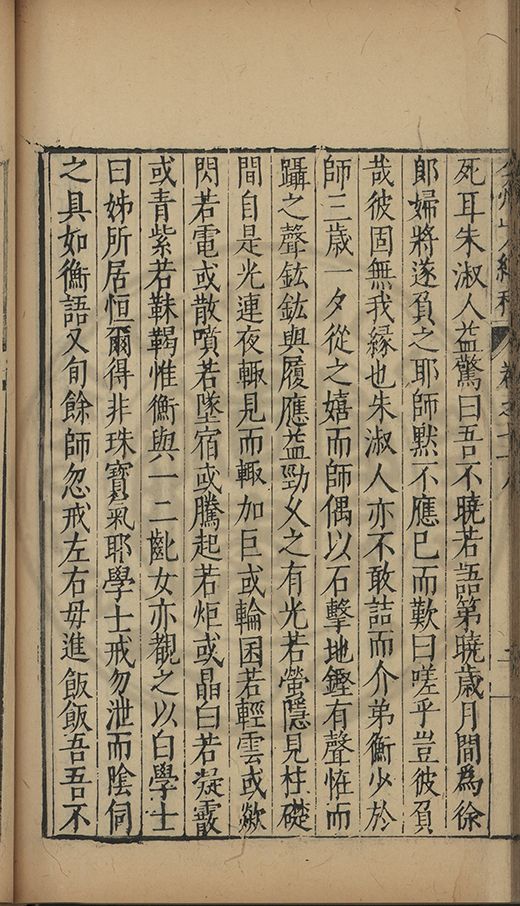 死耳朱淑人益驚曰吾不曉若語第曉歲月間爲徐
郎婦將遂負之耶師默不應已而歎曰嗟乎豈彼負
哉彼固無我緣也朱淑人亦不敢詰而介弟衡少於
師三歲一夕從之嬉而師偶以石擊地鏗有聲恠而
躡之聲鉉鉉與履應益勁久之有光若螢隱見柱礎
間自是光連夜輒見而輒加巨或輪囷若輕雲或歘
閃若電或散噴若墜宿或騰起若炬或晶白若凝霰
或青紫若靺鞨惟衡與一二齔女亦覩之以白學士
曰姊所居恒爾得非珠寶氣耶學士戒勿泄而陰伺
之具如衡語又旬餘師忽戒左右毋進飯飯吾吾不